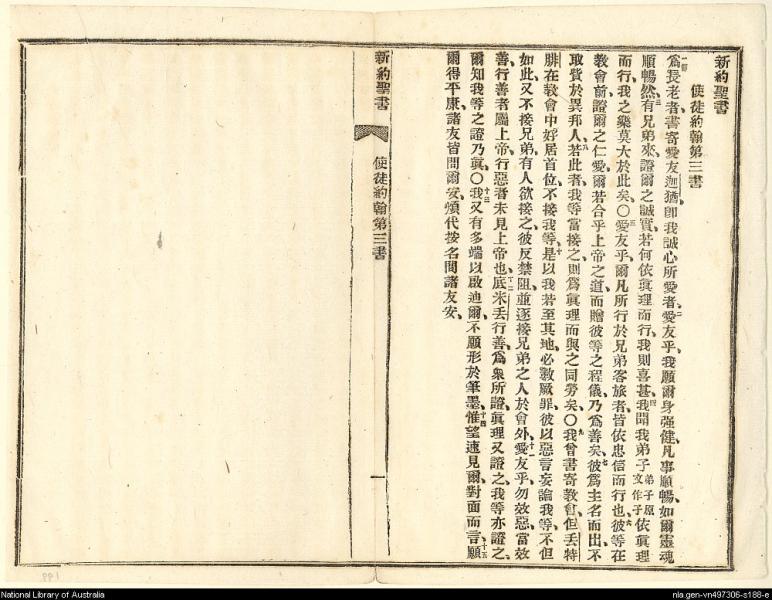 新約聖書
使徒約翰第三書
一為長老者、書寄愛友迦猶、卽我誠心所愛者、二愛友乎、我願爾身强健、凡事順暢、如爾靈魂
順暢然、三有兄弟來、證爾之誠實、若何依眞理而行、我則喜甚、四我聞我弟子弟子原文作子依眞理
而行、我之樂莫大於此矣、〇五愛友乎、爾凡所行於兄弟客旅者、皆依忠信而行也、六彼等在
教會前、證爾之仁愛、爾若合乎上帝之道、而贈彼等之程儀、乃爲善矣、七彼爲主名而出、不
取貲於異邦人、八若此者、我等當接之、則爲眞理而與之同勞矣、〇九我曾書寄教會、但丢特
腓在教會中好居首位、不接我等、十是以我若至其地、必數厥罪、彼以惡言妄論我等、不但
如此、又不接兄弟、有人欲接之、彼反禁阻、並逐接兄弟之人於會外、十一愛友乎、勿效惡、當效
善、行善者屬上帝、行惡者未見上帝也、十二底米丢行善、爲衆所證、眞理又證之、我等亦證之、
爾知我等之證乃眞、〇十三我又有多端以啟迪爾、不願形於筆墨、十四惟望速見爾、對面而言、十五願
爾得平康、諸友皆問爾安、煩代按名問諸友安、
新約聖書
使徒約翰第三書
一
199
National Library of Australia
nla.gen-vn497306-s188-e